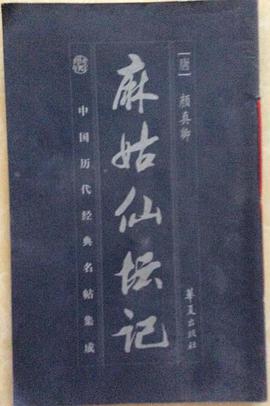 [唐]颜真卿
麻姑仙坛记
中国历代经典名帖集成
华夏出版社